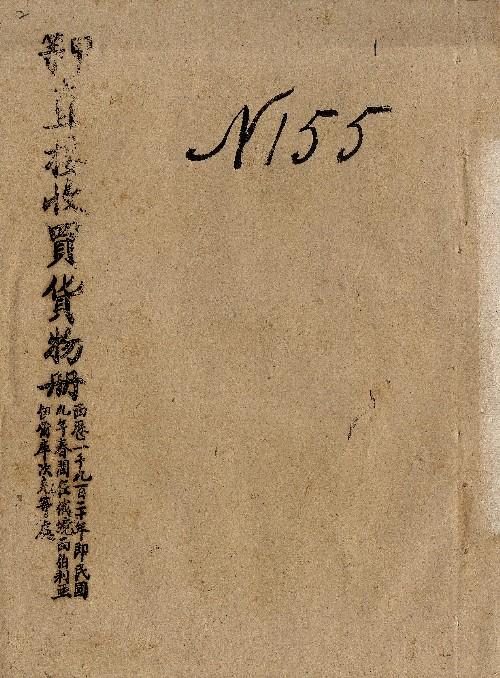 2
1
N155
直接收買貨物册
西歷一千九百二十年即民國
九年春間在俄境西伯利亞
伊爾庫次克等處